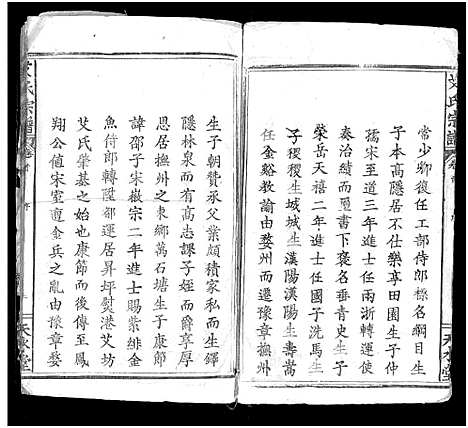 艾氏宗譜
常少卿復任工部侍郎標名綱目生
子本高隱居不仕樂享田園生子仲
孺宋至道三年進士任兩浙轉運使
奏治績於朝尚書下褒名垂青史生子
榮岳天禧二年進士任國子洗馬生
子稷生城城生漢陽漢陽生壽嵩
任金谿教諭由婺州而遷豫章撫州
天水堂
生子朝贊承父業頗積家私而生鐸
隱林泉而有高志課子姪而爵享厚
恩居撫州之東鄉萬石塘生子康節
諱邵子宋徽宗二年欽賜紫緋金
魚侍郎轉陞都運居昇坪熨港艾坊
艾氏肇基之始也康節而後傳至鳳
翔公值宋室遭金兵之亂由豫章婺
氏宗譜
天水堂